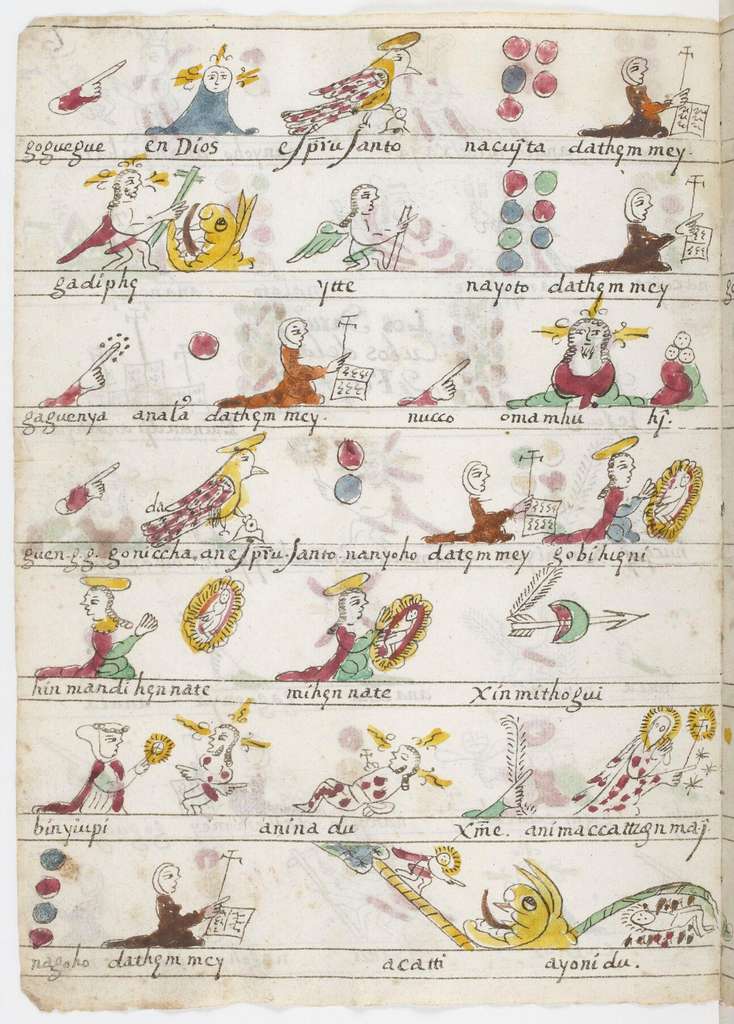 goguegue en Dios espũ santo nacuỹta dathẹm mey.
gadiphẹ ytte nayoto dathẹm mey
gaguenya anaía dathẹm mey. nucco omamhu hỹ.
da
guen.gg.goniccha, an espũ.santo nanyoho datẹmmey gobihẹni
hin mandi hẹnnate mihẹn nate xinmithogui
binyiupi anina du xm̃e. animaccattẹgnmaj̃
nagoho dathẹm mey acatti ayoni du.